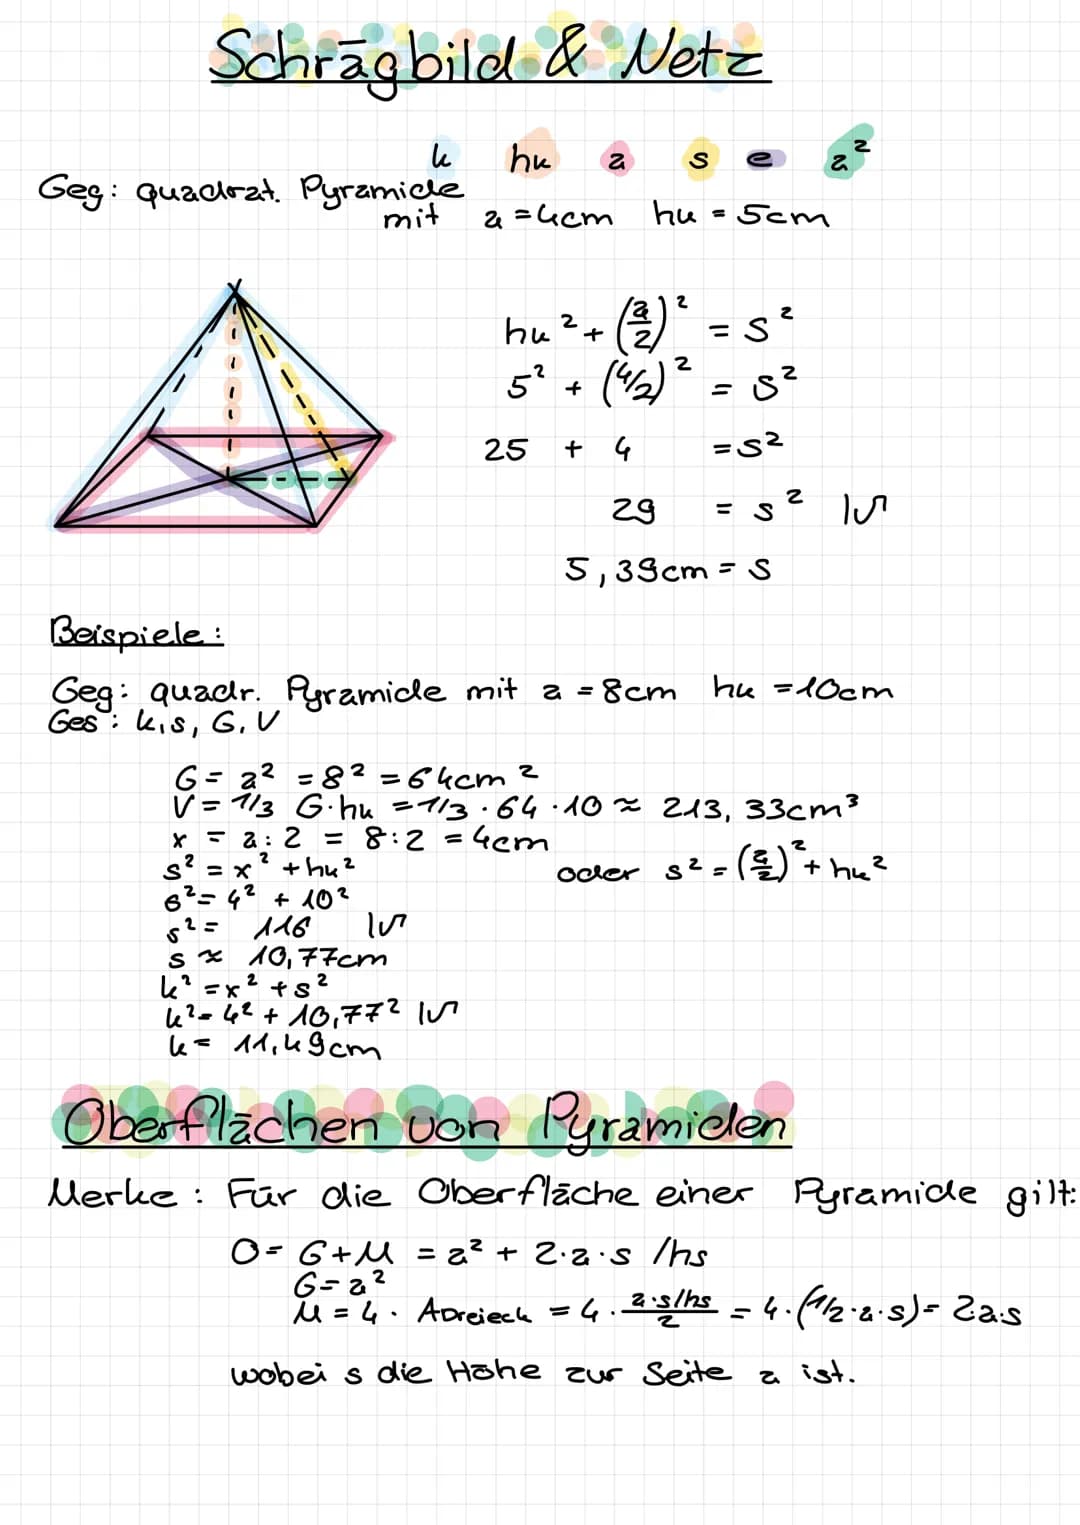 Schrägbild & Netz
k hk a s e a²
Geg: quadrat. Pyramide
mit a = 4cm hk = 5cm
hk² + (a/2)² = s²
5² + (4/2)² = s²
25 + 4 = s²
29 = s² |√
5,39cm = s
Beispiele:
Geg: quadr. Pyramide mit a = 8cm hk = 10cm
Ges: k,s, G, V
G = a² = 8² = 64cm²
V = 1/3 G·hk = 1/3 · 64 · 10 ≈ 213,33cm³
x = a : 2 = 8 : 2 = 4cm
s² = x² + hk² oder s² = (a/2)² + hk²
s² = 4² + 10²
s² = 116 |√
s ≈ 10,77cm
k² = x² + s²
k² = 4² + 10,77² |√
k = 11,49cm
Oberflächen von Pyramiden
Merke: Für die Oberfläche einer Pyramide gilt:
O = G + M = a² + 2·a·s /hs
G = a²
M = 4 · ADreieck = 4 · a·s/hs / 2 = 4·(1/2·a·s) = 2a·s
wobei s die Höhe zur Seite a ist.